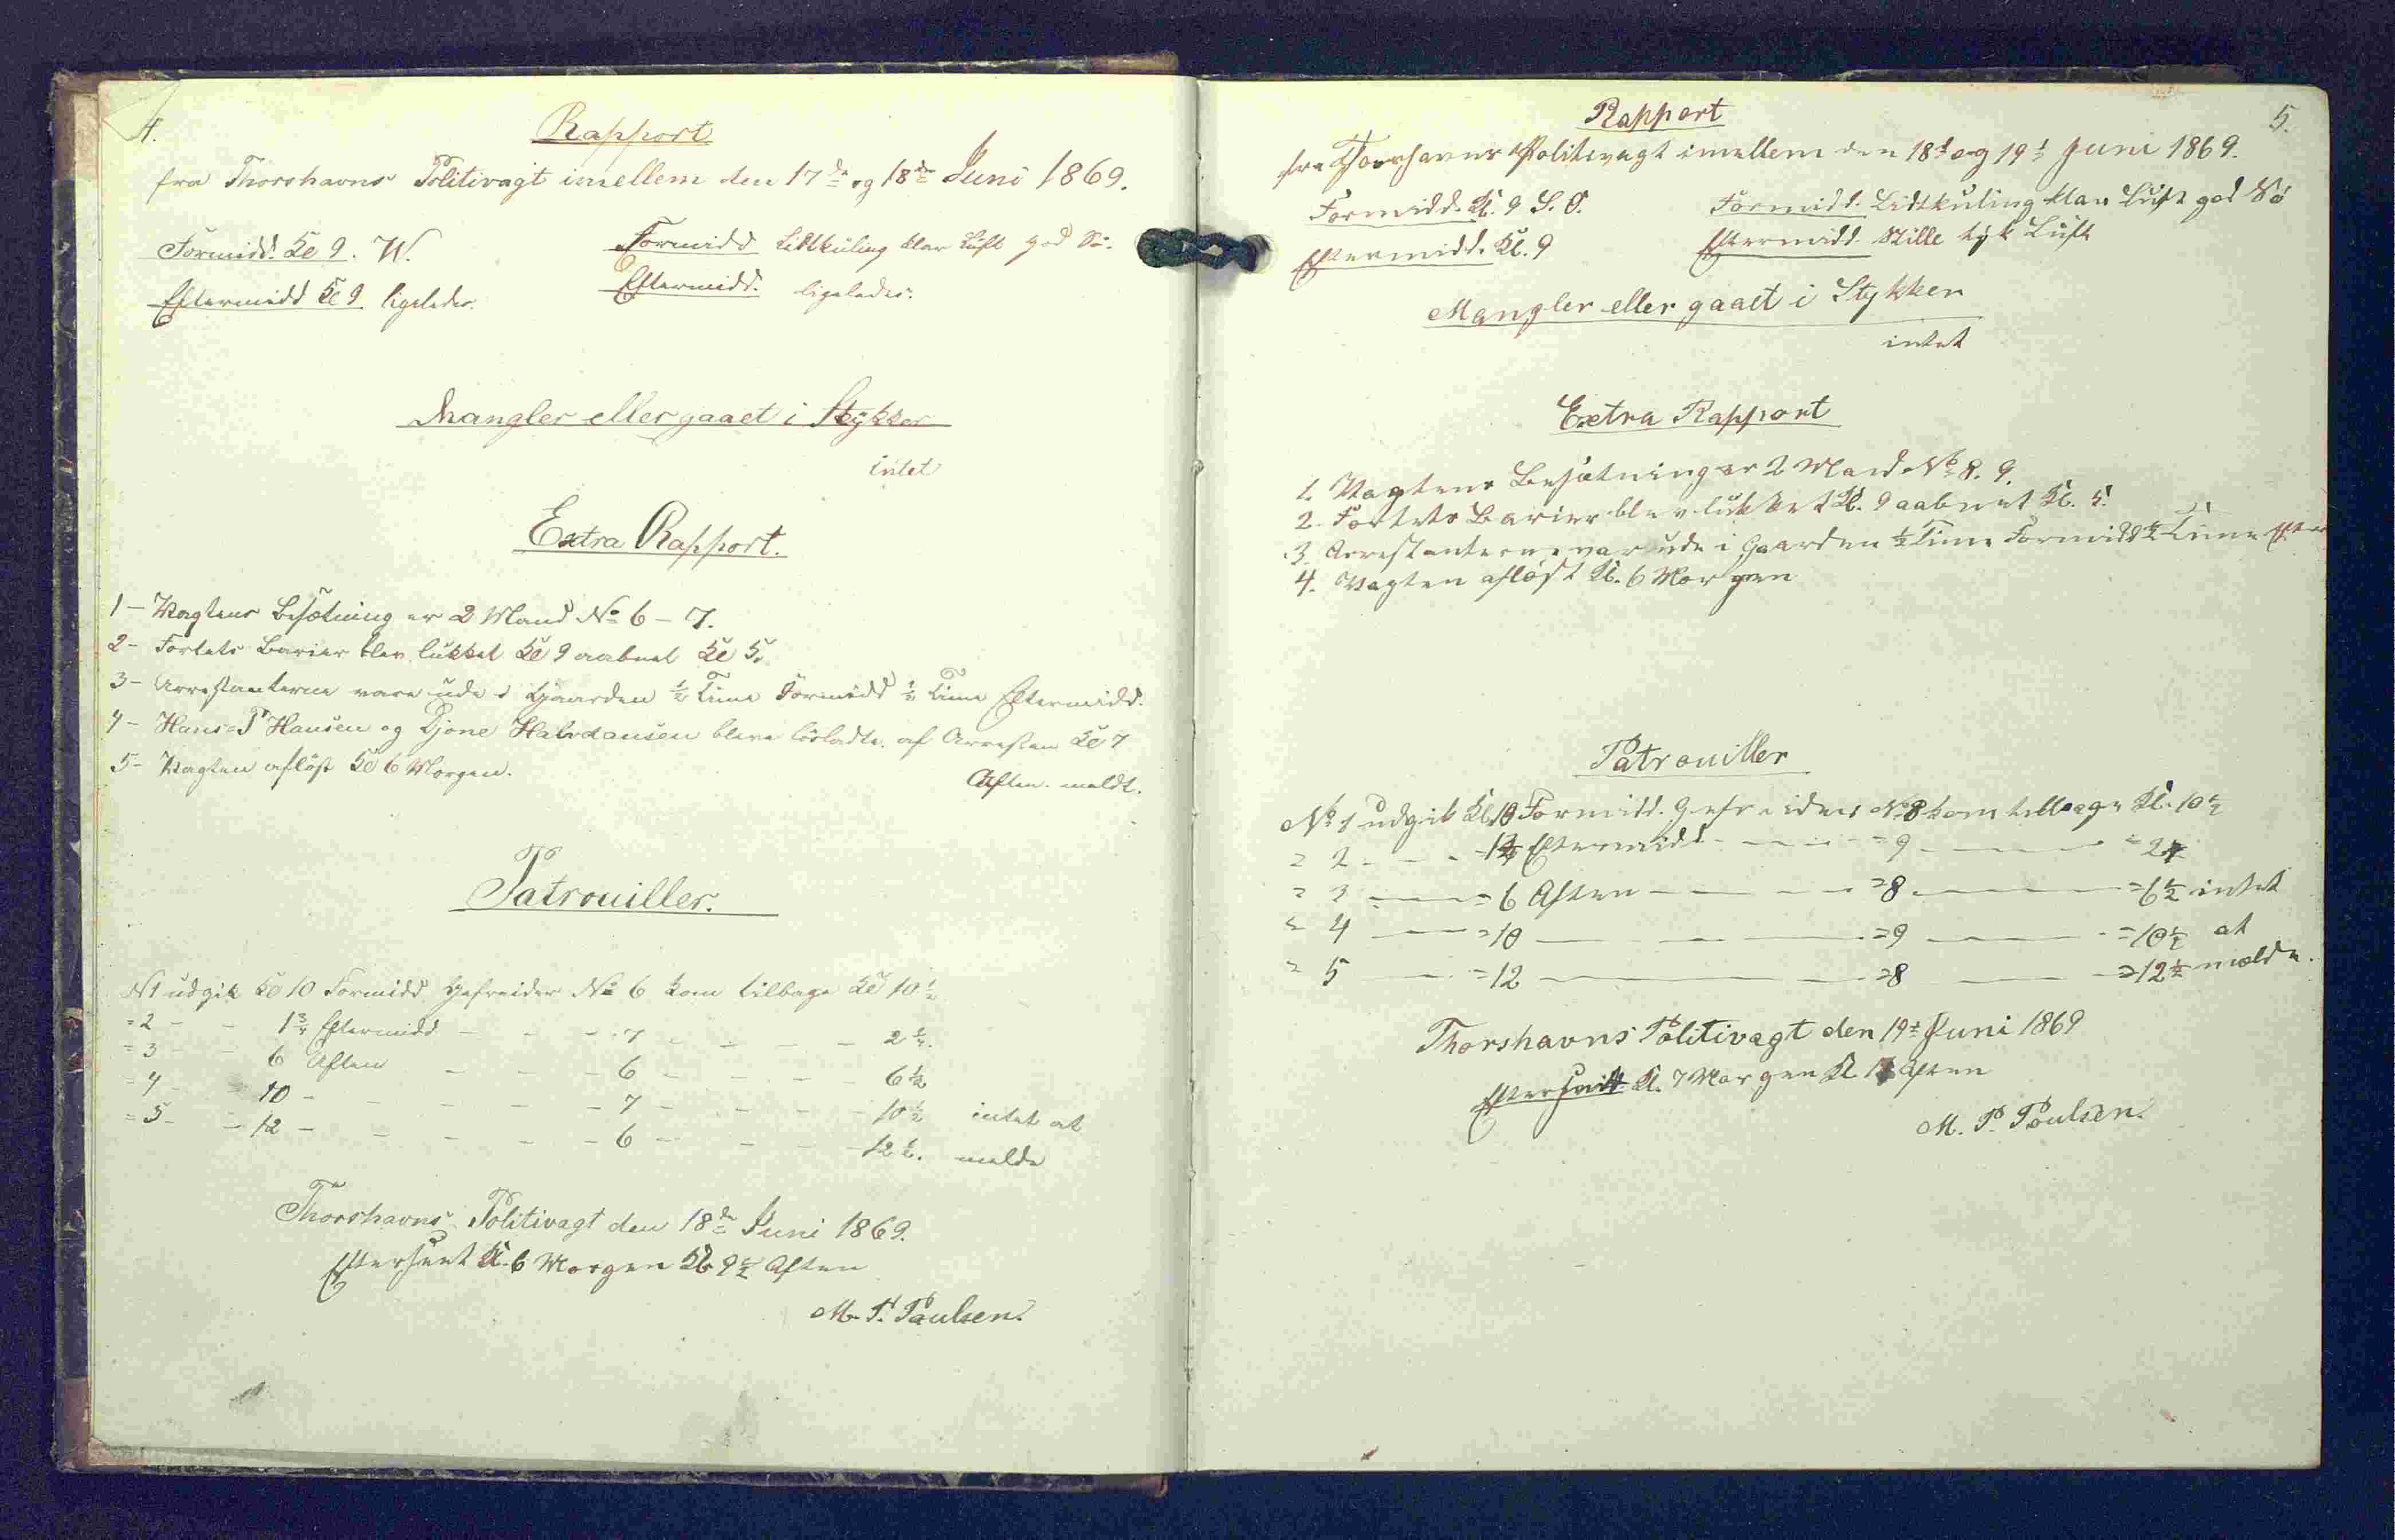 4.
Rapport
fra Thorshavns Politivagt imellem den 17de og 18de Juni 1869.
Formidd. Kl 9. W.
Formidd Lidtkuling klar Luft god Sö.
Eftermidd Kl 9 ligeledes.
Eftermidd. ligeledes.
Mangler eller gaaet i Stykker
intet
Extra Rapport.
1- Vagtens Besætning er 2 Mand No 6 - 7.
2- Fortets Barier blev lukket Kl 9 aabnet Kl 5.
3- Arrestanterne vare ude i Gaarden ½ Time Formidd ½ Time Eftermidd.
4- Hans P Hansen og Djone Halvdansen bleve lösladte af Arresten Kl 7
Aften. meldt.
5- Vagten aflöst Kl 6 Morgen.
Patrouiller.
N1 udgik Kl 10 Formidd Gefreider No 6 kom tilbage Kl 10 ½
=2 - - 1¾ Eftermidd - - - 7 - - - - 2¼.
=3 - - 6 Aften - - - 6 - - - - 6½
=4 - = 10 - - - - - - 7 - - - - 10½ intet at
=5 - - 12 - - - - - - 6 - - - - 12½. melde
Thorshavns Politivagt den 18de Juni 1869.
Efterseet Kl. 6 Morgen Kl 9½ Aften
M. P. Paulsen.
5.
Rapport
fra Thorshavns Politivagt imellem den 18d og 19d Juni 1869.
Formidd. Kl. 9 S. O.
Formidd. Lidtkuling klar Luft god Sö
Eftermidd. Kl. 9
Eftermidd. Stille tyk Luft
Mangler eller gaaet i Stykker
intet
Extra Rapport
1. Vagtens Besætning er 2 Mand No 8. 9.
2. Fortets Barier blev lukket Kl. 9 aabnet Kl. 5.
3. Arrestanterne var ude i Gaarden ½ Time Formidd ½ Time Efter
4. Vagten aflöst Kl. 6 Morgen
Patrouiller
No 1 udgik Kl 10 Formidd. Gefreider No 8 kom tilbage Kl. 10½
= 2 - - - 1¾ Eftermidd - - - = 9 - - - = 2¼
= 3 - - = 6 Aften - - - = 8 - - - = 6½ intet
= 4 - - = 10 - - - = 9 - - - = 10½ at
= 5 - - = 12 - - - = 8 - - - = 12½ melde.
Thorshavns Politivagt den 19d Juni 1869
Efterseet Kl. 7 Morgen Kl Aften
M. P. Poulsen.